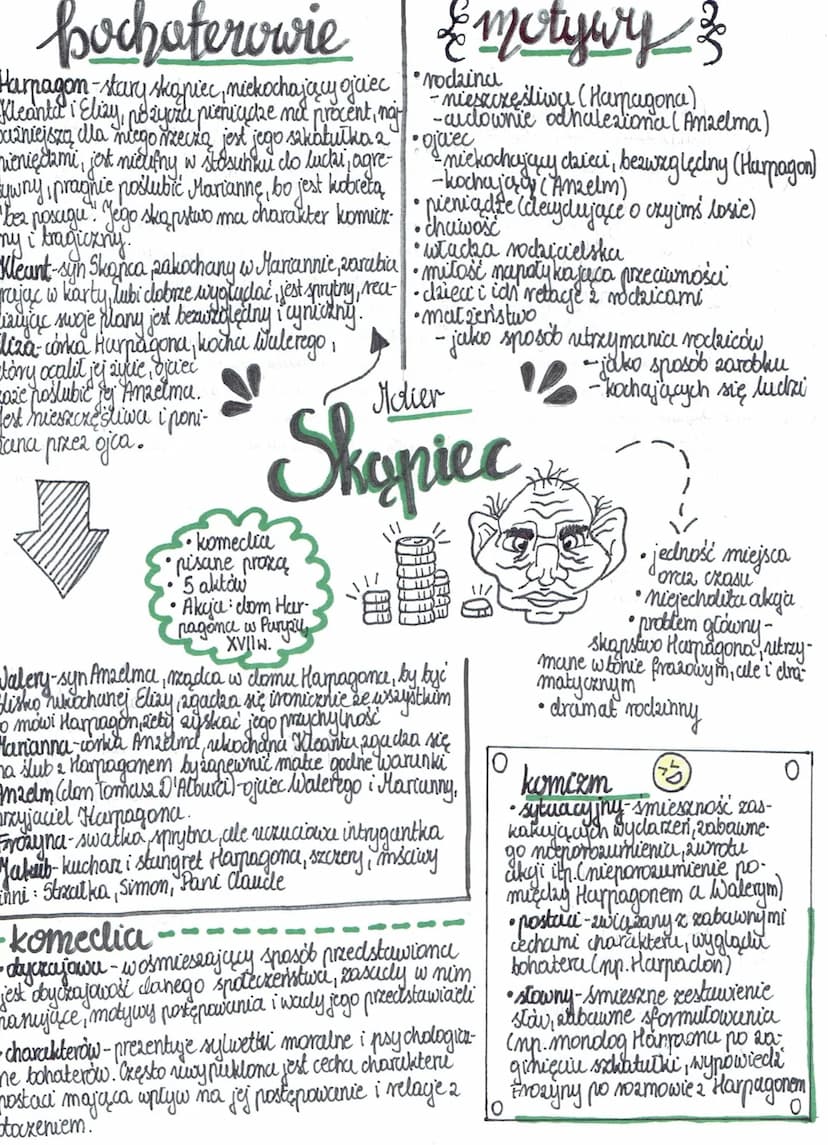 bochaterowie
Harpagon - stary skąpiec, niekochający ojciec
Kleanta i Elizy, pożycza pieniądze na procent, naj-
ważniejszą dla niego rzeczą jest jego szkatułka z
pieniędzmi, jest nieufny w stosunku do ludzi, agre-
sywny, pragnie poślubić Mariannę, bo jest kobietą
"bez posagu". Jego skąpstwo ma charakter komicz-
ny i tragiczny.
Kleant - syn Skąpca zakochany w Mariannie, zarabia
grając w karty, lubi dobrze wyglądać, jest sprytny, rea-
lizując swoje plany jest bezwzględny i cyniczny.
Eliza - córka Harpagona, kocha Walerego,
który ocalił jej życie, ojciec
każe poślubić jej Anzelma.
Jest nieszczęśliwa i poni-
żana przez ojca.
motywy
• rodzina
- nieszczęśliwa (Harpagona)
- cudownie odnaleziona (Anzelma)
• ojciec
- niekochający dzieci, bezwzględny (Harpagon)
- kochający (Anzelm)
• pieniądze (decydujące o czyimś losie)
• chciwość
• władza rodzicielska
• miłość napotykająca przeciwności
• dzieci i ich relacje z rodzicami
• małżeństwo
- jako sposób utrzymania rodziców
- jako sposób zarobku
- kochających się ludzi
Molier
Skąpiec
• komedia
• pisane prozą
• 5 aktów
• Akcja: dom Har-
pagona w Paryżu,
XVII w.
• jedność miejsca
oraz czasu
• niejednolita akcja
• problem główny -
skąpstwo Harpagona, utrzy-
mane w tonie frazowym, ale i dra-
matycznym
• dramat rodzinny
Walery - syn Anzelma, rządca w domu Harpagona, by być
blisko ukochanej Elizy, zgadza się ironicznie ze wszystkim
co mówi Harpagon, żeby zyskać jego przychylność
Marianna - córka Anzelma, ukochana Kleanta, zgadza się
na ślub z Harpagonem by zapewnić matce godne warunki
Anzelm (don Tomasz D'Alburci) - ojciec Walerego i Marianny,
przyjaciel Harpagona.
Frozyna - swatka, sprytna, ale uczuciowa intrygantka
Jakub - kucharz i stangret Harpagona, szczery, mściwy
inni: Strzałka, Simon, Pani Claude
komedia
• obyczajowa - w ośmieszający sposób przedstawiona
jest obyczajowość danego społeczeństwa, zasady w nim
panujące, motywy postępowania i wady jego przedstawicieli
• charakterów - prezentuje sylwetki moralne i psychologicz-
ne bohaterów. Często uwypuklona jest cecha charakteru
postaci mająca wpływ na jej postępowanie i relacje z
otoczeniem.
komizm
• sytuacyjny - śmieszność zas-
kakujących wydarzeń, zabawne-
go nieporozumienia, zwrotu
akcji itp. (nieporozumienie po-
między Harpagonem a Walerym)
• postaci - związany z zabawnymi
cechami charakteru, wyglądu
bohatera (np. Harpadon)
• słowny - śmieszne zestawienie
słów, zabawne sformułowania
(np. monolog Harpagona po za-
ginięciu szkatułki, wypowiedzi
Frozyny po rozmowie z Harpagonem